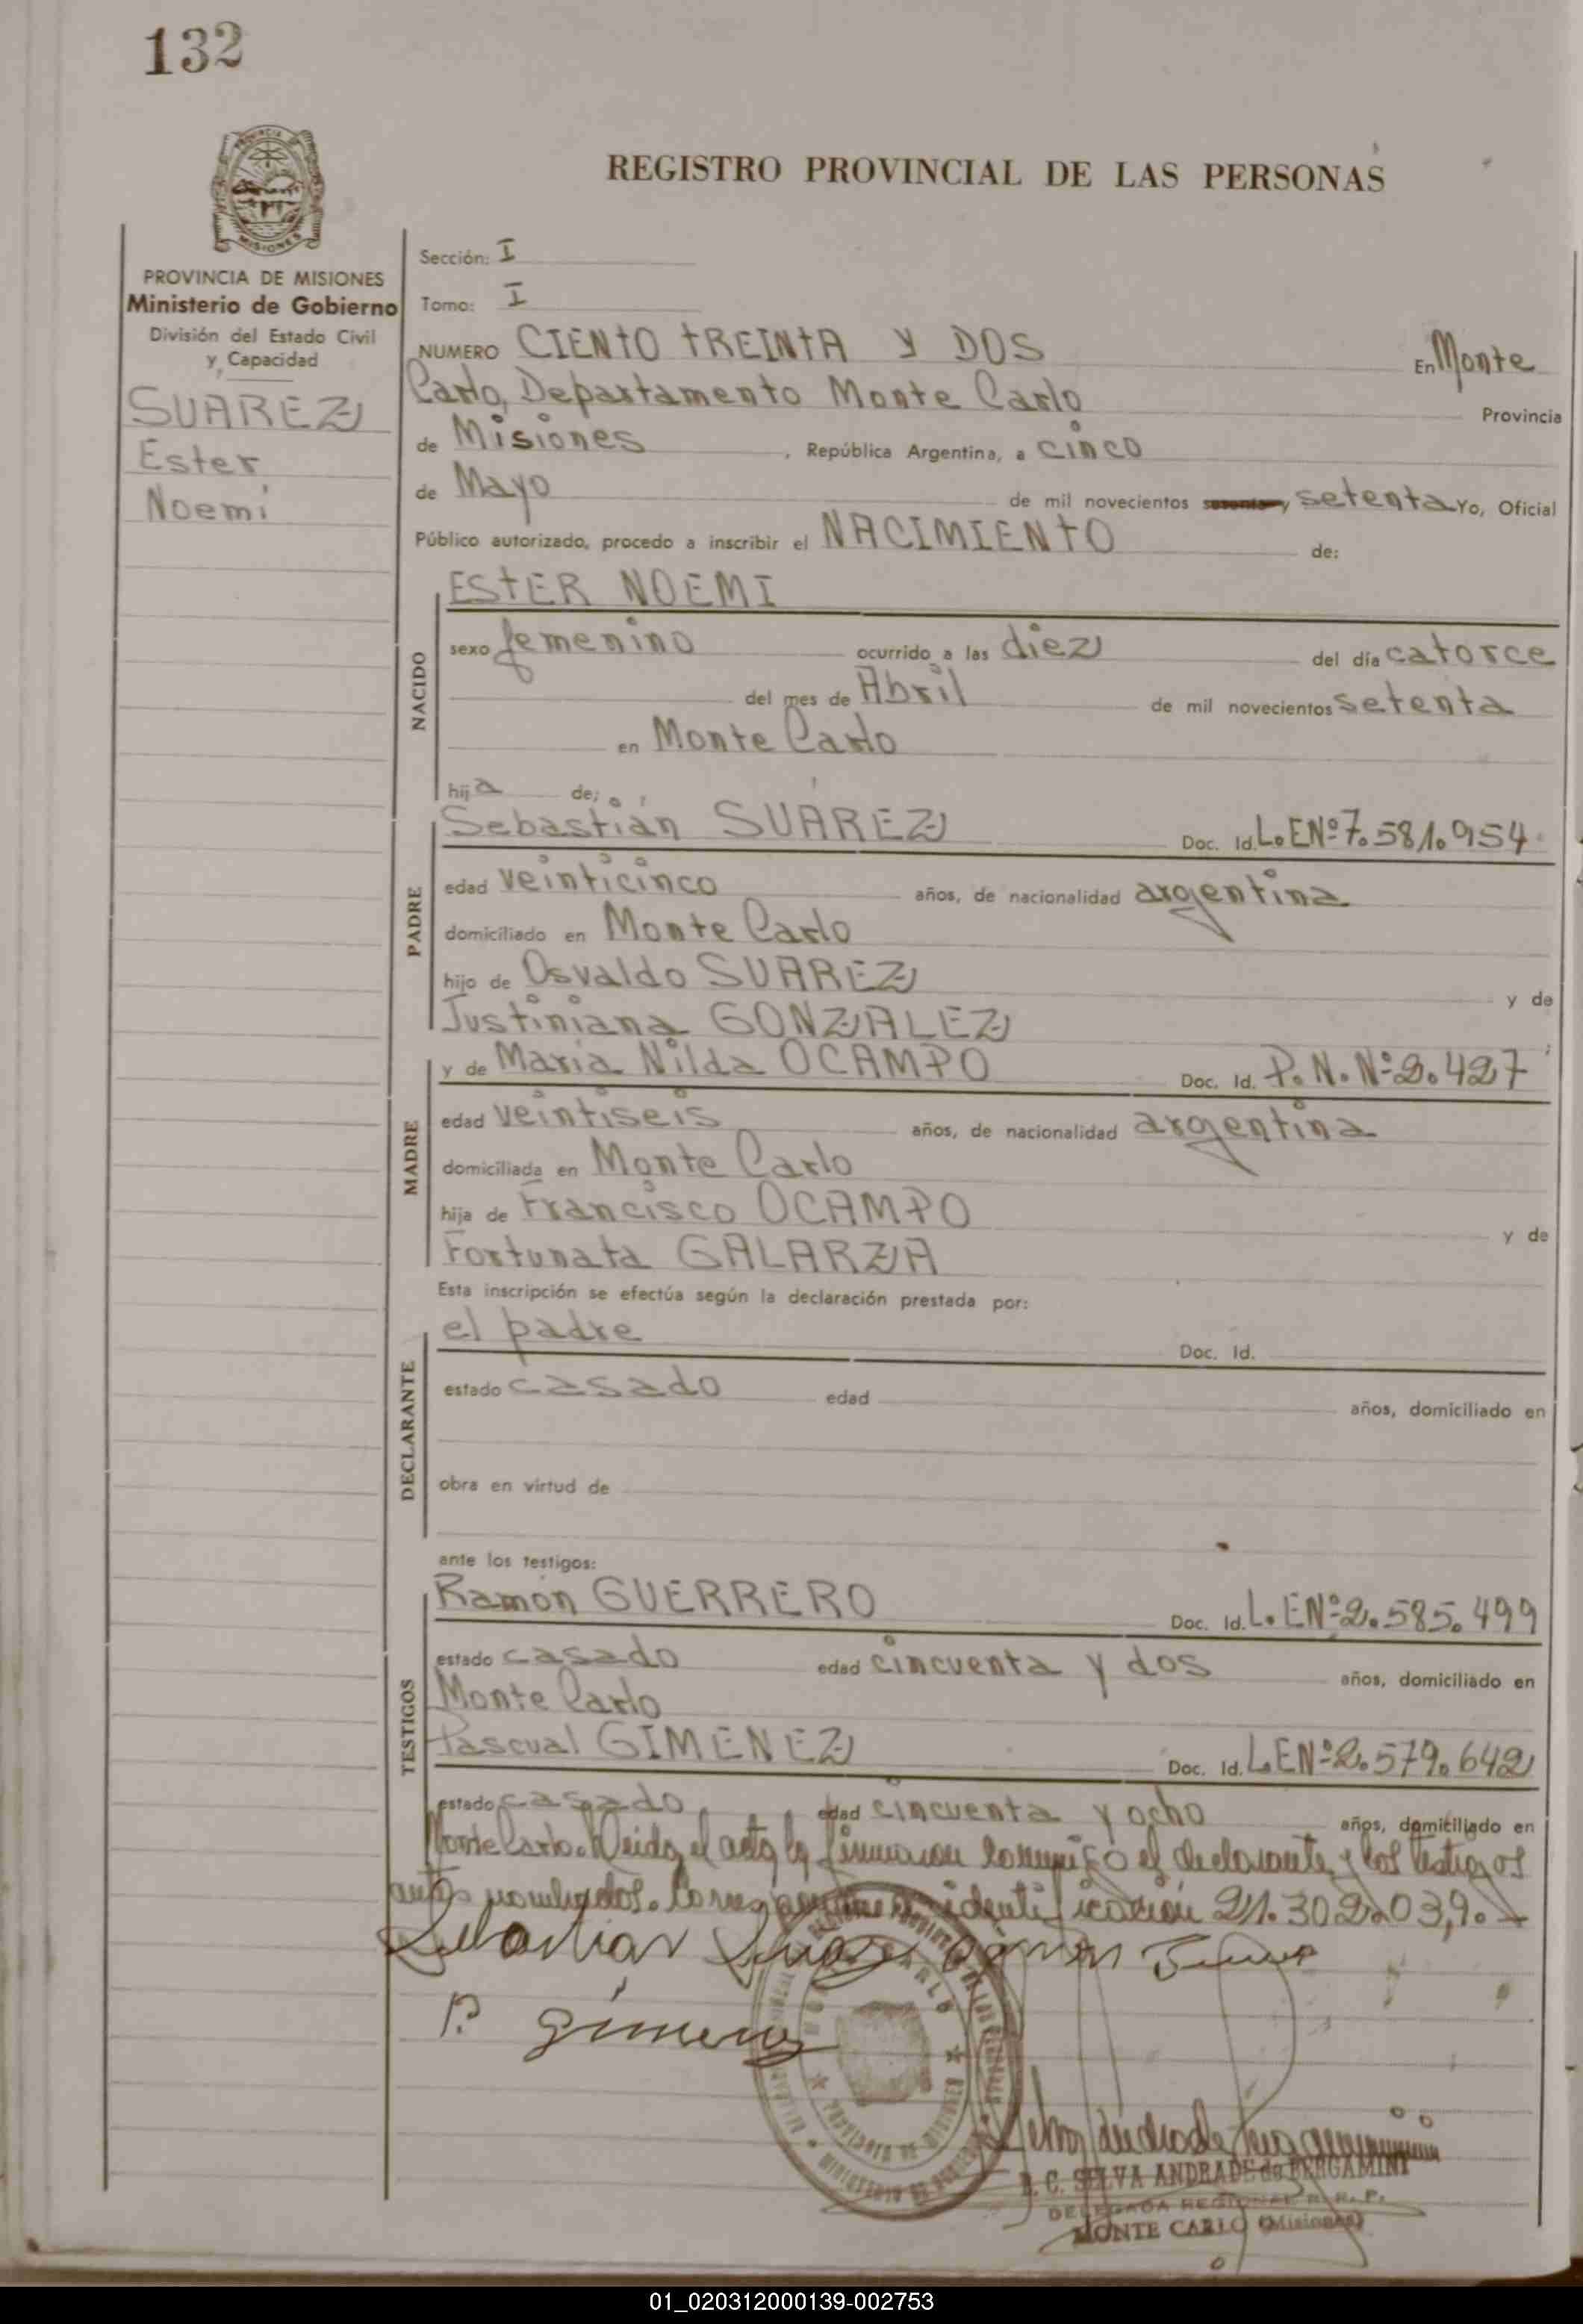 132
REGISTRO PROVINCIAL DE LAS PERSONAS
MISIONES
PROVINCIA DE MISIONES
Ministerio de Gobierno
División del Estado Civil
y Capacidad
SUAREZ
Ester
Noemí
Sección: I
Tomo: I
NUMERO CIENTO TREINTA Y DOS En Monte
Carlo, Departamento Monte Carlo Provincia
de Misiones, República Argentina, a cinco
de Mayo de mil novecientos sesenta y setenta Yo, Oficial
Público autorizado, procedo a inscribir el NACIMIENTO de:
NACIDO
ESTER NOEMI
sexo femenino ocurrido a las diez del día catorce
del mes de Abril de mil novecientos setenta
en Monte Carlo
hija de:
PADRE
Sebastián SUÁREZ Doc. Id. L.E Nº 7.581.954
edad veinticinco años, de nacionalidad argentina
domiciliado en Monte Carlo
hijo de Osvaldo SUAREZ y de
Justiniana GONZALEZ
MADRE
y de María Nilda OCAMPO Doc. Id. P.N. Nº 2.427
edad veintiseis años, de nacionalidad argentina
domiciliada en Monte Carlo
hija de Francisco OCAMPO y de
Fortunata GALARZA
Esta inscripción se efectúa según la declaración prestada por:
DECLARANTE
el padre Doc. Id.
estado casado edad años, domiciliado en
obra en virtud de
ante los testigos:
TESTIGOS
Ramón GUERRERO Doc. Id. L.E Nº 2.585.499
estado casado edad cincuenta y dos años, domiciliado en
Monte Carlo
Pascual GIMENEZ Doc. Id. L.E Nº 2.579.642
estado casado edad cincuenta y ocho años, domiciliado en
Monte Carlo. Leida el acta la firmaron conmigo el declarante y los testigos
antes nombrados. identificación 21.302.039.
Sebastian Suarez
P. Gimenez
PROVINCIA DE MISIONES
B. C. SELVA ANDRADE de BERGAMINI
DELEGADA REGIONAL R. R. P.
MONTE CARLO (Misiones)
01_020312000139-002753